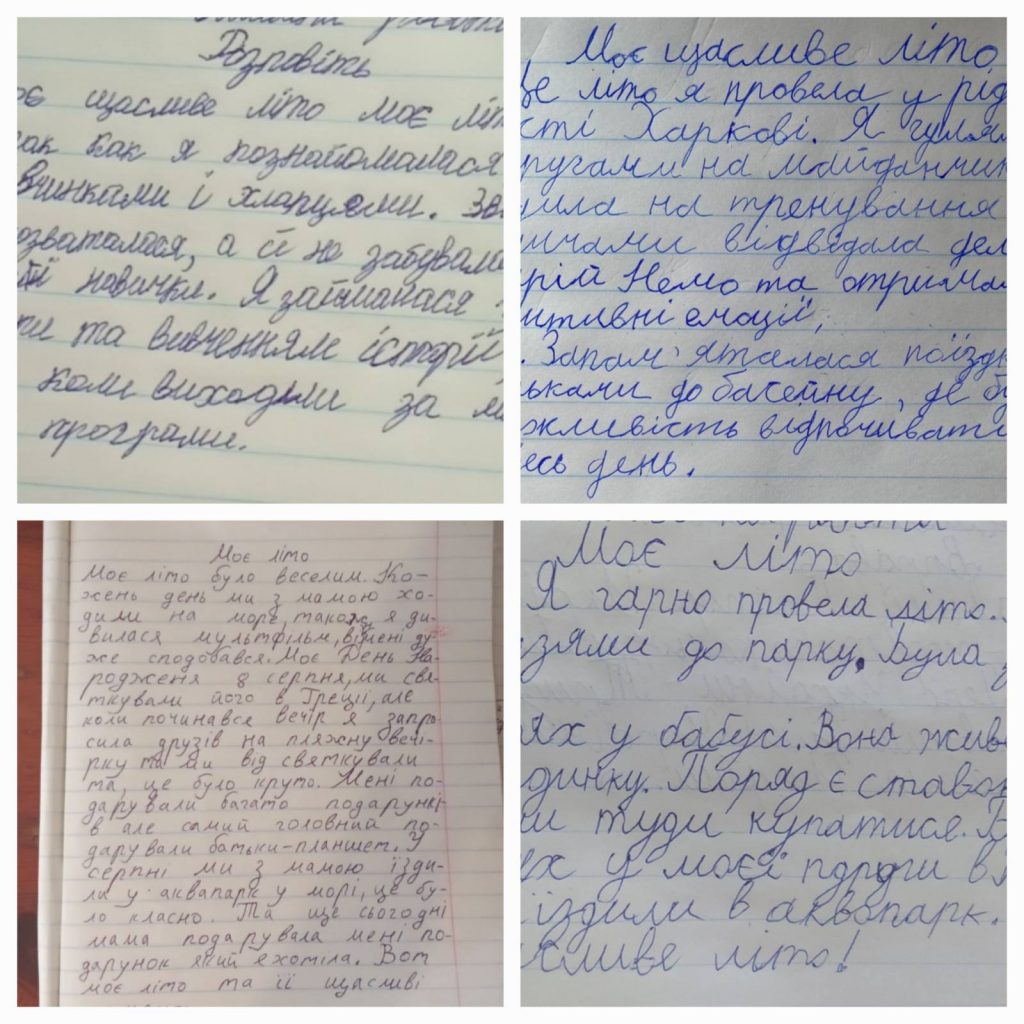 Розповіть
щасливе літо моє літ
так как я познайомалася
вчинками і хлапцями. За
озваталася, а й не забувала
навички. Я займалася
та вивченням історії
коли виходили за
програми.
Моє щасливе літо
Це літо я провела у рід
сті Харкові. Я гуляла
ругами на майданчик
дила на тренування
ичами відвідала дел
рій Немо та отримал
итивні емоції,
Запам'яталася поїздк
ьками до басейну, де бу
жливість відпочивати
есь день.
Моє літо
Моє літо було веселим. Ко-
жень день ми з мамою хо-
дими на море, також я ди-
вилася мультфільм, він мені ду-
же сподобався. Моє День На-
родженя 8 серпня, ми свя-
ткували його в Греції, але
коли починався вечір я запро
сила друзів на пляжну вечі-
рку та ми від святкували
та, це було круто. Мені по-
дарували багато подарункі-
в але самий головний по-
дарували батьки-планшет. У
серпні ми з мамою їзди-
ла у аквапарк у морі, це бу-
ло класно. Та ще сьогодні
мама подарувала мені по-
дарунок який я хотіла. Вот
моє літо та її щасливі
Моє літо
Я гарно провела літо.
узями до парку. Була
ях у бабусі. Вона живе
динку. Поряд є ставок
ми туди купатися. В
ях у моєя подруги в
їздили в аквапарк.
асливе літо!